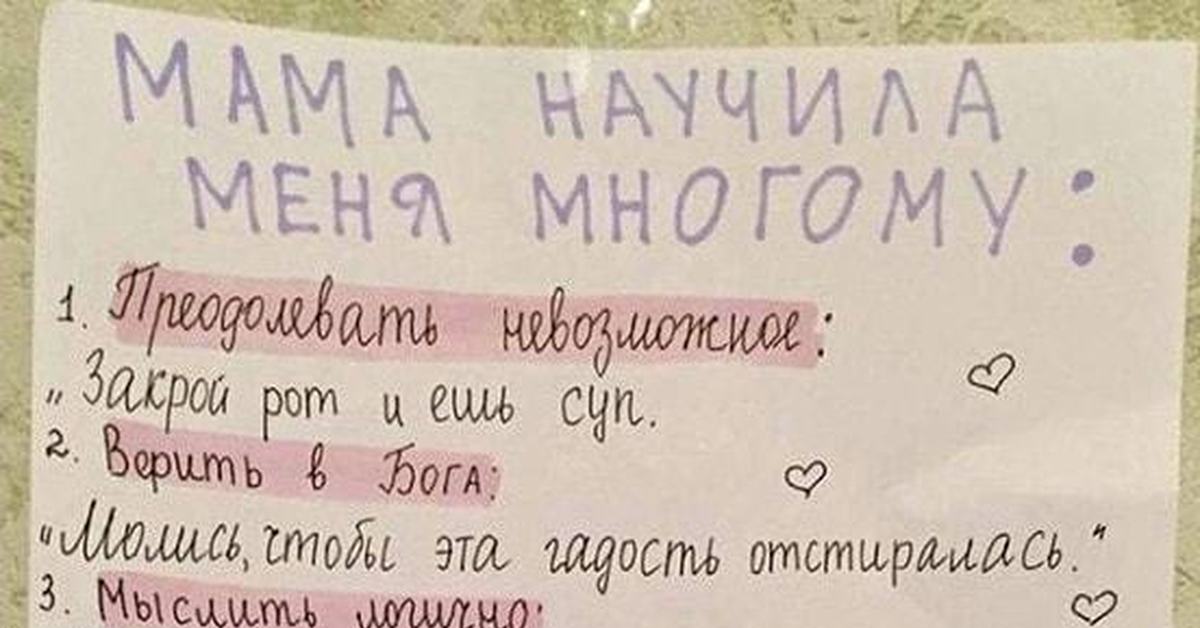 МАМА НАУЧИЛА
МЕНЯ МНОГОМУ:
1. Преодолевать невозможное:
„Закрой рот и ешь суп.
2. Верить в Бога:
“Молись, чтобы эта гадость отстиралась.”
3. Мыслить логично: